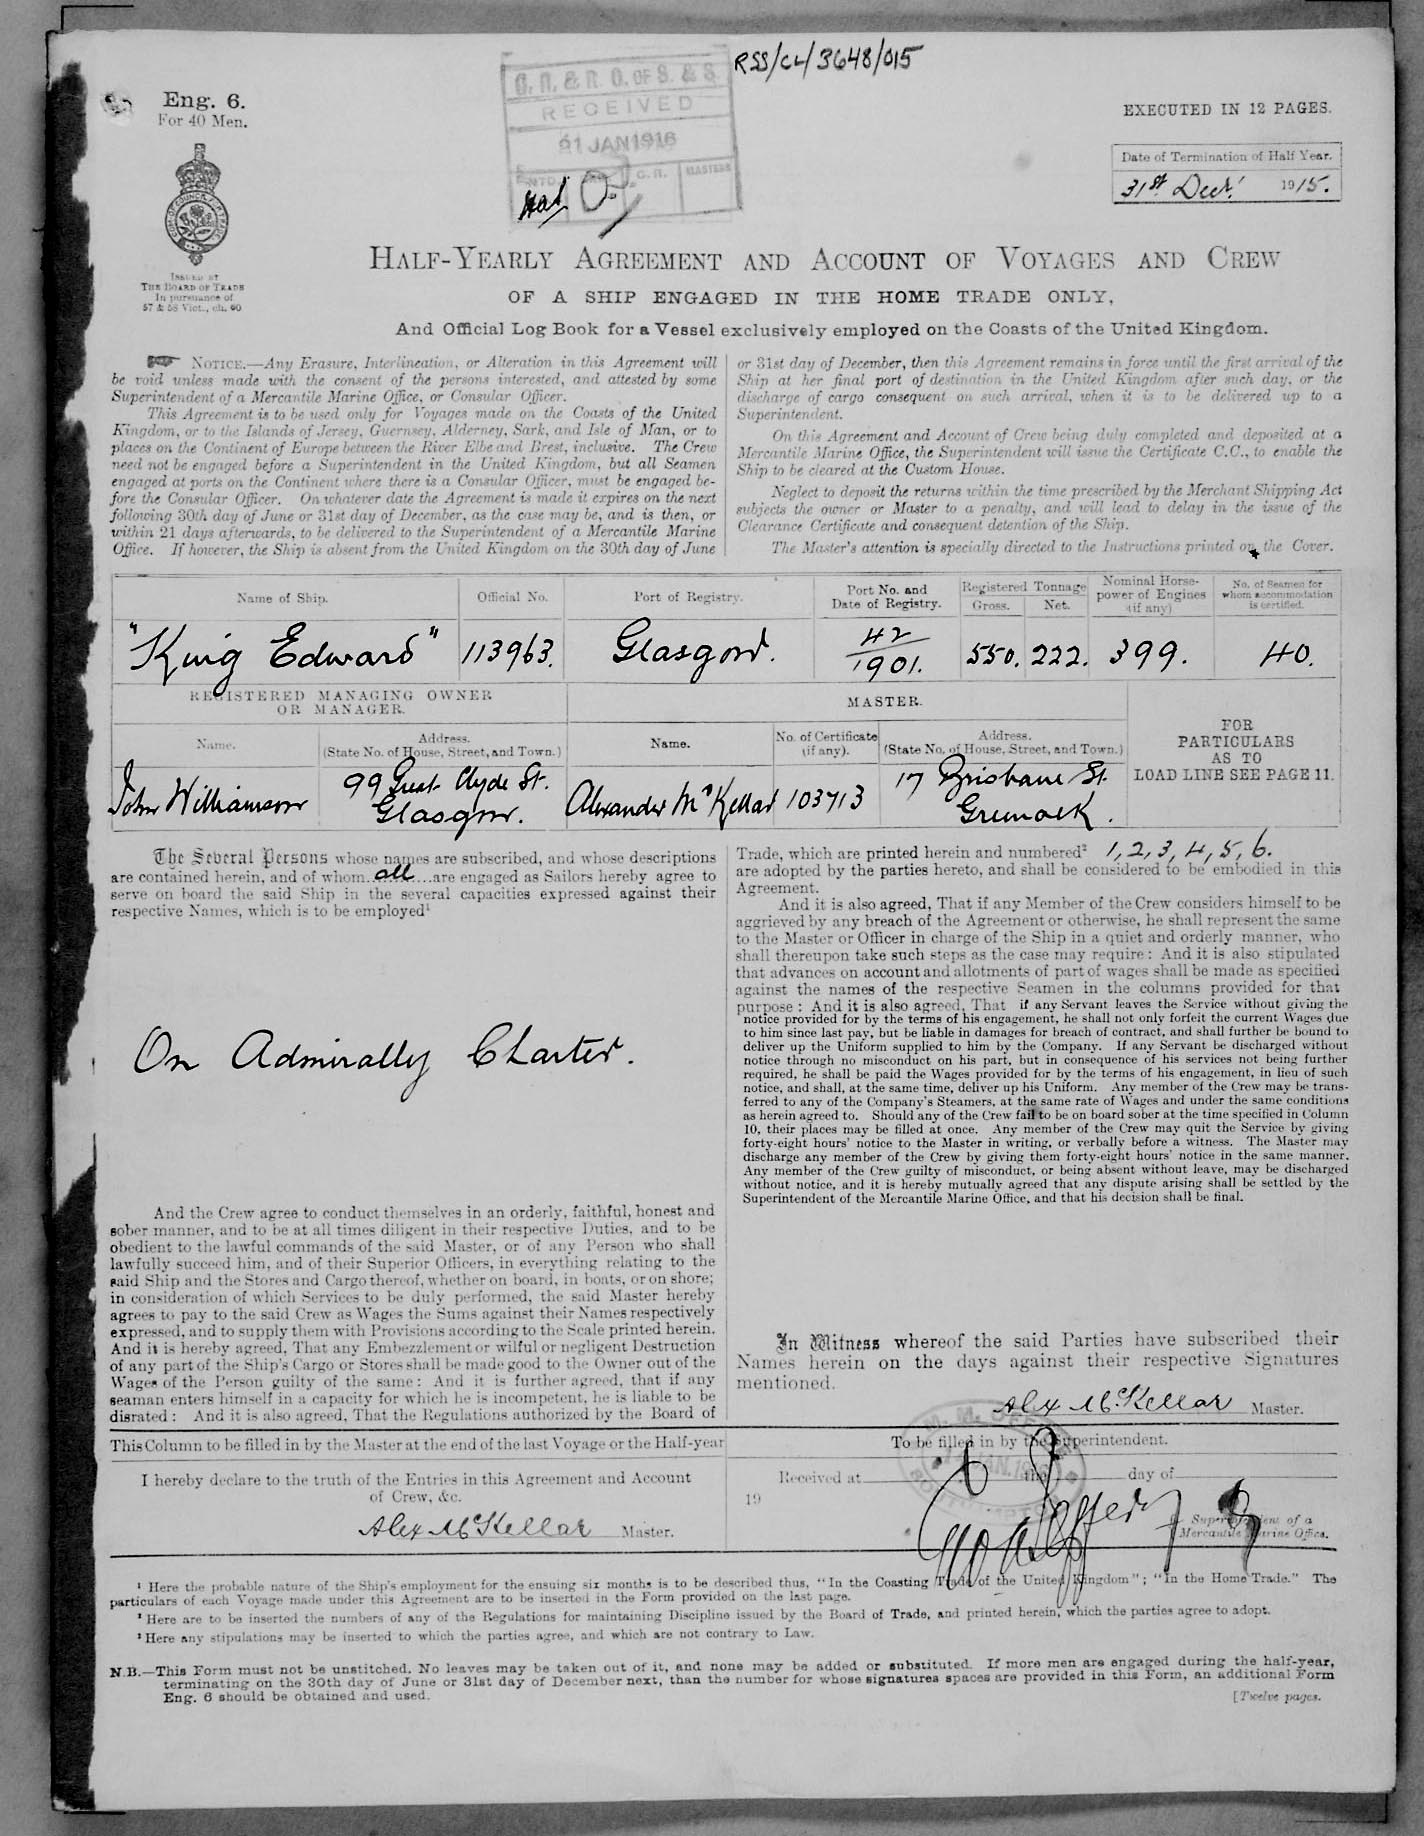 RSS/CL/3648/015
Eng. 6.
For 40 Men.
G. R. & R. O. OF S. & S.
RECEIVED
21 JAN 1916
C. R.
MASTERS
EXECUTED IN 12 PAGES.
Date of Termination of Half Year.
31st Decr. 1915.
ISSUED BY
THE BOARD OF TRADE
In pursuance of
57 & 58 Vict., ch. 60
HALF-YEARLY AGREEMENT AND ACCOUNT OF VOYAGES AND CREW
OF A SHIP ENGAGED IN THE HOME TRADE ONLY,
And Official Log Book for a Vessel exclusively employed on the Coasts of the United Kingdom.
NOTICE.—Any Erasure, Interlineation, or Alteration in this Agreement will
be void unless made with the consent of the persons interested, and attested by some
Superintendent of a Mercantile Marine Office, or Consular Officer.
This Agreement is to be used only for Voyages made on the Coasts of the United
Kingdom, or to the Islands of Jersey, Guernsey, Alderney, Sark, and Isle of Man, or to
places on the Continent of Europe between the River Elbe and Brest, inclusive. The Crew
need not be engaged before a Superintendent in the United Kingdom, but all Seamen
engaged at ports on the Continent where there is a Consular Officer, must be engaged be-
fore the Consular Officer. On whatever date the Agreement is made it expires on the next
following 30th day of June or 31st day of December, as the case may be, and is then, or
within 21 days afterwards, to be delivered to the Superintendent of a Mercantile Marine
Office. If however, the Ship is absent from the United Kingdom on the 30th day of June
or 31st day of December, then this Agreement remains in force until the first arrival of the
Ship at her final port of destination in the United Kingdom after such day, or the
discharge of cargo consequent on such arrival, when it is to be delivered up to a
Superintendent.
On this Agreement and Account of Crew being duly completed and deposited at a
Mercantile Marine Office, the Superintendent will issue the Certificate C.C., to enable the
Ship to be cleared at the Custom House.
Neglect to deposit the returns within the time prescribed by the Merchant Shipping Act
subjects the owner or Master to a penalty, and will lead to delay in the issue of the
Clearance Certificate and consequent detention of the Ship.
The Master's attention is specially directed to the Instructions printed on the Cover.
Name of Ship. Official No. Port of Registry. Port No. and Date of Registry. Registered Tonnage Gross. Net. Nominal Horse-power of Engines (if any) No. of Seamen for whom accommodation is certified.
"King Edward" 113963. Glasgow. 42/1901. 550. 222. 399. 40.
REGISTERED MANAGING OWNER
OR MANAGER.
MASTER.
Name. Address. (State No. of House, Street, and Town.) Name. No. of Certificate (if any). Address. (State No. of House, Street, and Town.)
FOR
PARTICULARS
AS TO
LOAD LINE SEE PAGE 11.
John Williamson 99 Great Clyde St. Glasgow. Alexander McKellar 103713 17 Brisbane St. Greenock.
The Several Persons whose names are subscribed, and whose descriptions
are contained herein, and of whom all are engaged as Sailors hereby agree to
serve on board the said Ship in the several capacities expressed against their
respective Names, which is to be employed¹
On Admiralty Charter.
And the Crew agree to conduct themselves in an orderly, faithful, honest and
sober manner, and to be at all times diligent in their respective Duties, and to be
obedient to the lawful commands of the said Master, or of any Person who shall
lawfully succeed him, and of their Superior Officers, in everything relating to the
said Ship and the Stores and Cargo thereof, whether on board, in boats, or on shore;
in consideration of which Services to be duly performed, the said Master hereby
agrees to pay to the said Crew as Wages the Sums against their Names respectively
expressed, and to supply them with Provisions according to the Scale printed herein.
And it is hereby agreed, That any Embezzlement or wilful or negligent Destruction
of any part of the Ship's Cargo or Stores shall be made good to the Owner out of the
Wages of the Person guilty of the same: And it is further agreed, that if any
seaman enters himself in a capacity for which he is incompetent, he is liable to be
disrated: And it is also agreed, That the Regulations authorized by the Board of
Trade, which are printed herein and numbered² 1, 2, 3, 4, 5, 6.
are adopted by the parties hereto, and shall be considered to be embodied in this
Agreement.
And it is also agreed, That if any Member of the Crew considers himself to be
aggrieved by any breach of the Agreement or otherwise, he shall represent the same
to the Master or Officer in charge of the Ship in a quiet and orderly manner, who
shall thereupon take such steps as the case may require: And it is also stipulated
that advances on account and allotments of part of wages shall be made as specified
against the names of the respective Seamen in the columns provided for that
purpose: And it is also agreed, That if any Servant leaves the Service without giving the
notice provided for by the terms of his engagement, he shall not only forfeit the current Wages due
to him since last pay, but be liable in damages for breach of contract, and shall further be bound to
deliver up the Uniform supplied to him by the Company. If any Servant be discharged without
notice through no misconduct on his part, but in consequence of his services not being further
required, he shall be paid the Wages provided for by the terms of his engagement, in lieu of such
notice, and shall, at the same time, deliver up his Uniform. Any member of the Crew may be trans-
ferred to any of the Company's Steamers, at the same rate of Wages and under the same conditions
as herein agreed to. Should any of the Crew fail to be on board sober at the time specified in Column
10, their places may be filled at once. Any member of the Crew may quit the Service by giving
forty-eight hours' notice to the Master in writing, or verbally before a witness. The Master may
discharge any member of the Crew by giving them forty-eight hours' notice in the same manner.
Any member of the Crew guilty of misconduct, or being absent without leave, may be discharged
without notice, and it is hereby mutually agreed that any dispute arising shall be settled by the
Superintendent of the Mercantile Marine Office, and that his decision shall be final.
In Witness whereof the said Parties have subscribed their
Names herein on the days against their respective Signatures
mentioned.
Alex McKellar Master.
This Column to be filled in by the Master at the end of the last Voyage or the Half-year
I hereby declare to the truth of the Entries in this Agreement and Account
of Crew, &c.
Alex McKellar Master.
To be filled in by the Superintendent.
Received at the day of
19
Superintendent of a
Mercantile Marine Office.
¹ Here the probable nature of the Ship's employment for the ensuing six months is to be described thus, "In the Coasting Trade of the United Kingdom"; "In the Home Trade." The
particulars of each Voyage made under this Agreement are to be inserted in the Form provided on the last page.
² Here are to be inserted the numbers of any of the Regulations for maintaining Discipline issued by the Board of Trade, and printed herein, which the parties agree to adopt.
³ Here any stipulations may be inserted to which the parties agree, and which are not contrary to Law.
N.B.—This Form must not be unstitched. No leaves may be taken out of it, and none may be added or substituted. If more men are engaged during the half-year,
terminating on the 30th day of June or 31st day of December next, than the number for whose signatures spaces are provided in this Form, an additional Form
Eng. 6 should be obtained and used.
[Twelve pages.